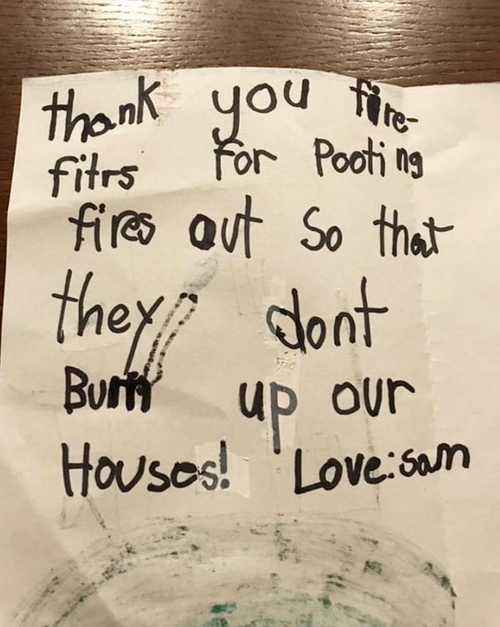 thank you fire-
fitrs for Pooting
fires out so that
they dont
Burn up our
Houses! Love:sam